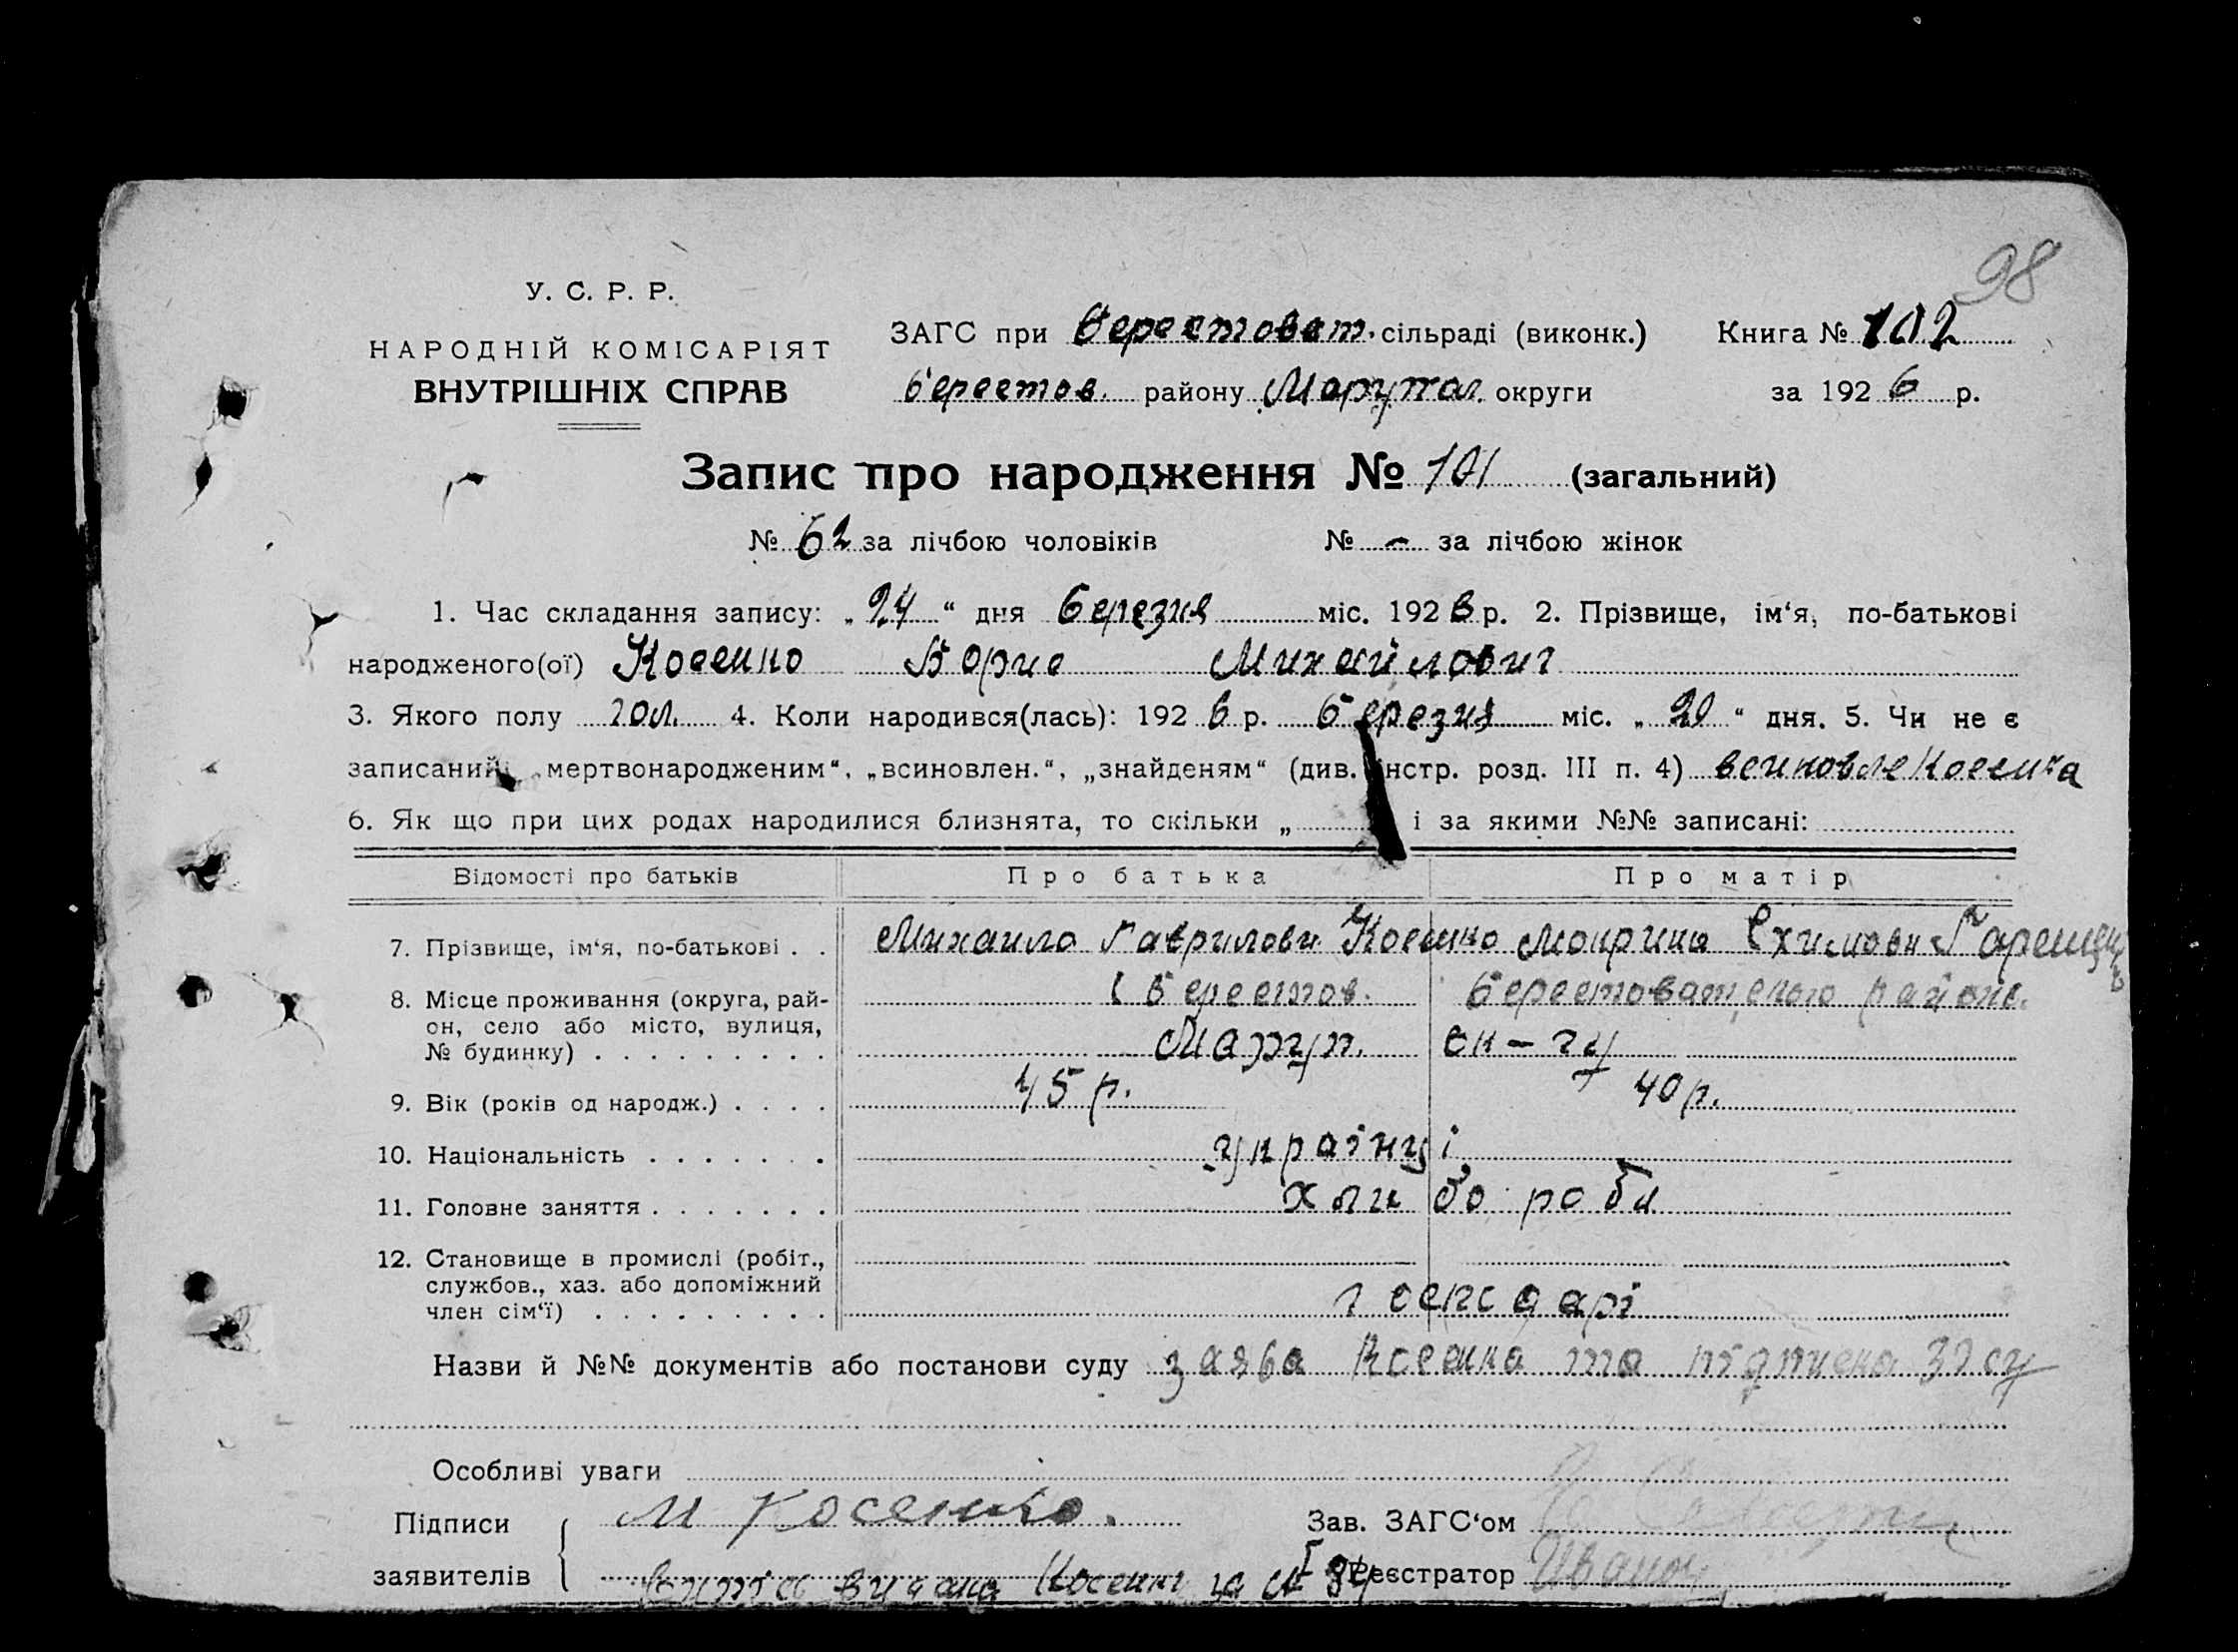 98
У. С. Р. Р.
НАРОДНІЙ КОМІСАРІЯТ
ВНУТРІШНІХ СПРАВ
ЗАГС при Берестоват. сільраді (виконк.) Книга № 102
Берестов. району Маруп округи за 1926 р.
Запис про народження № 101 (загальний)
№ 62 за лічбою чоловіків № – за лічбою жінок
1. Час складання запису: „24“ дня березня міс. 1926 р. 2. Прізвище, ім‘я, по-батькові
народженого(ої) Косенко Борис Михайлович
3. Якого полу чол. 4. Коли народився(лась): 1926 р. березня міс. „20“ дня. 5. Чи не є
записаний „мертвонародженим“, „всиновлен.“, „знайденям“ (див. інстр. розд. III п. 4) Косенка
6. Як що при цих родах народилися близнята, то скільки „ і за якими №№ записані:
Відомості про батьків Про батька Про матір
7. Прізвище, ім‘я, по-батькові . . Михаило Гаврилови Косенко
8. Місце проживання (округа, рай-
он, село або місто, вулиця,
№ будинку) . . . . . . . . .
Берестов. Берестоватського району
Маруп. ок-гу
9. Вік (років од народж.) . . . . 45 р. 40 р.
10. Національність . . . . . . . українці
11. Головне заняття . . . . . . . хлібороби
12. Становище в промислі (робіт.,
службов., хаз. або допоміжний
член сім‘ї) . . . . . . . . .
госпо дарі
Назви й №№ документів або постанови суду заява Косенка та
Особливі уваги
Підписи М Косенко. Зав. ЗАГС‘ом
заявителів видана Косенк за № 84 Реєстратор Иванов